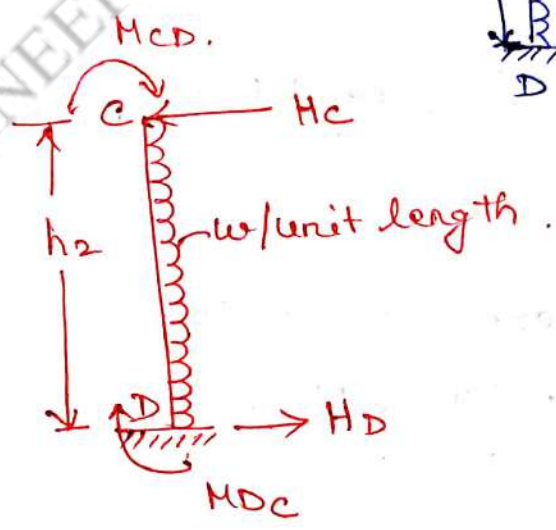 NEE
MCD.
D
C
HC
h2
w/unit length.
D
HD
MDC